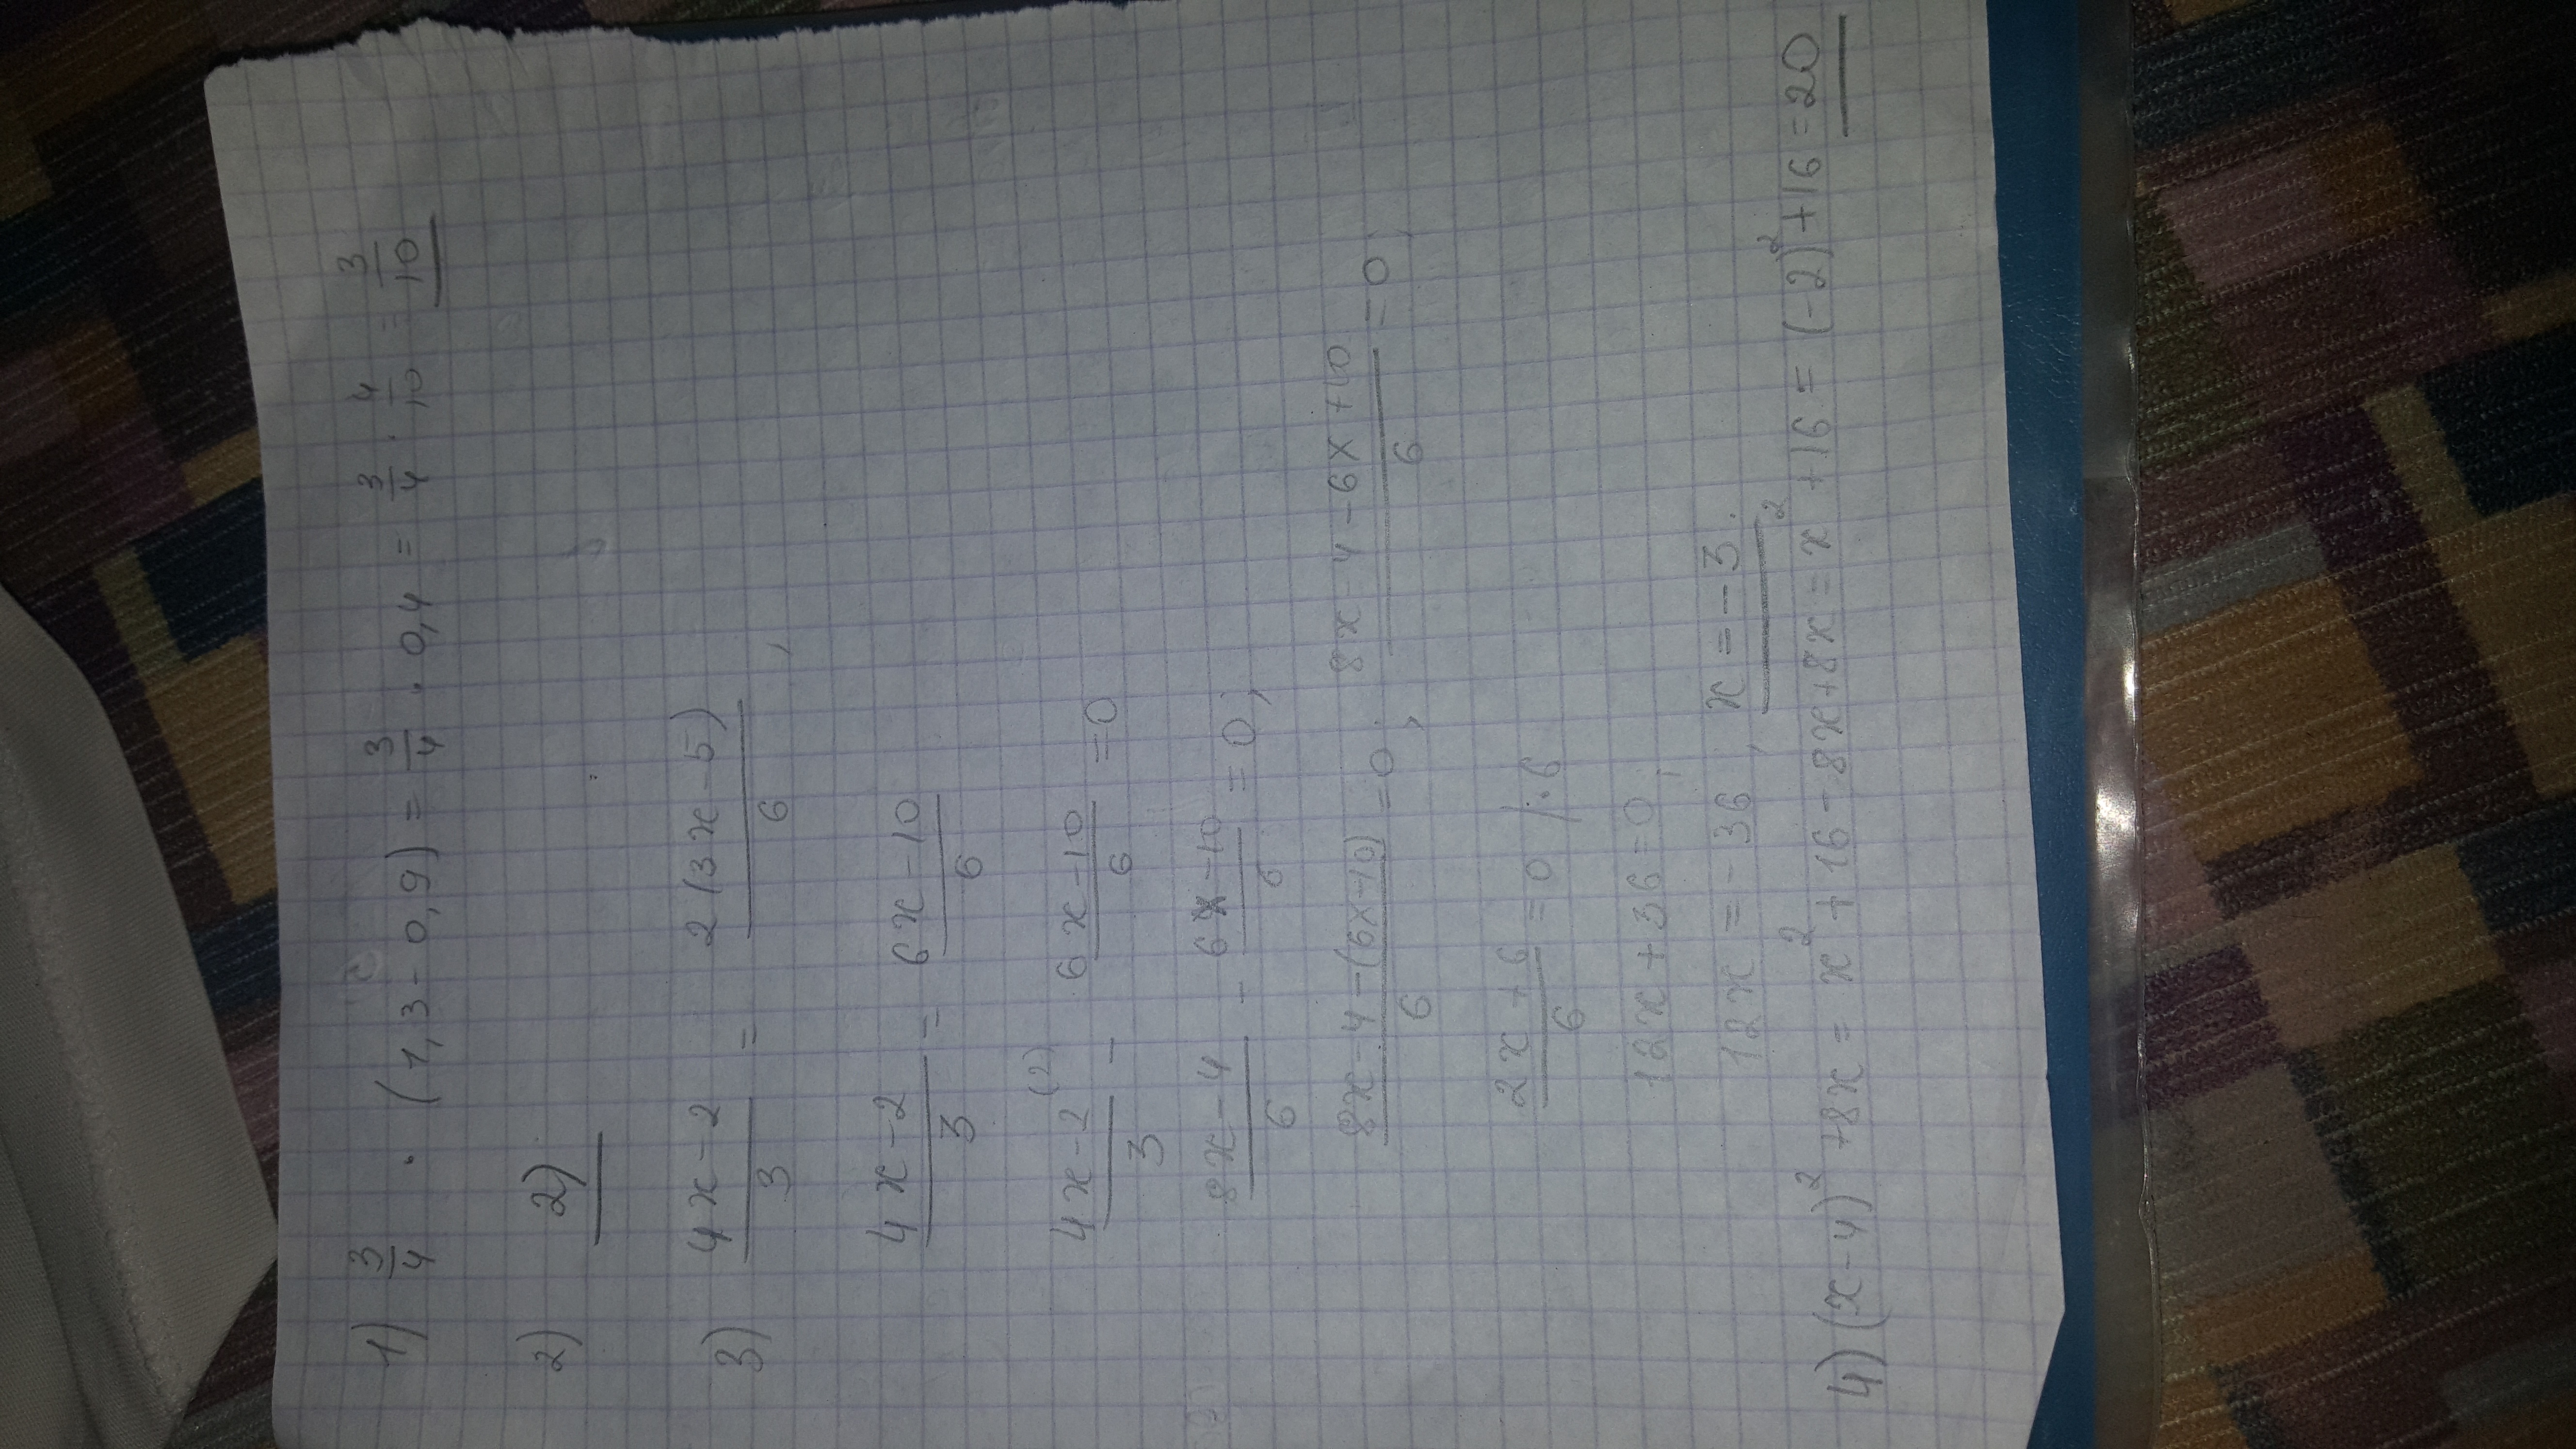 1) 3/4 · (1,3 - 0,9) = 3/4 · 0,4 = 3/4 · 4/10 = 3/10
2) 2)
3) (4x-2)/3 = 2(3x-5)/6 ,
(4x-2)/3 = (6x-10)/6
(4x-2)/3 (2) - (6x-10)/6 = 0
(8x-4)/6 - (6x-10)/6 = 0;
(8x-4-(6x-10))/6 = 0; (8x-4-6x+10)/6 = 0
(2x+6)/6 = 0 /·6
12x+36=0;
12x=-36, x=-3.
4) (x-4)² +8x = x² + 16 - 8x + 8x = x² + 16 = (-2)² + 16 = 20